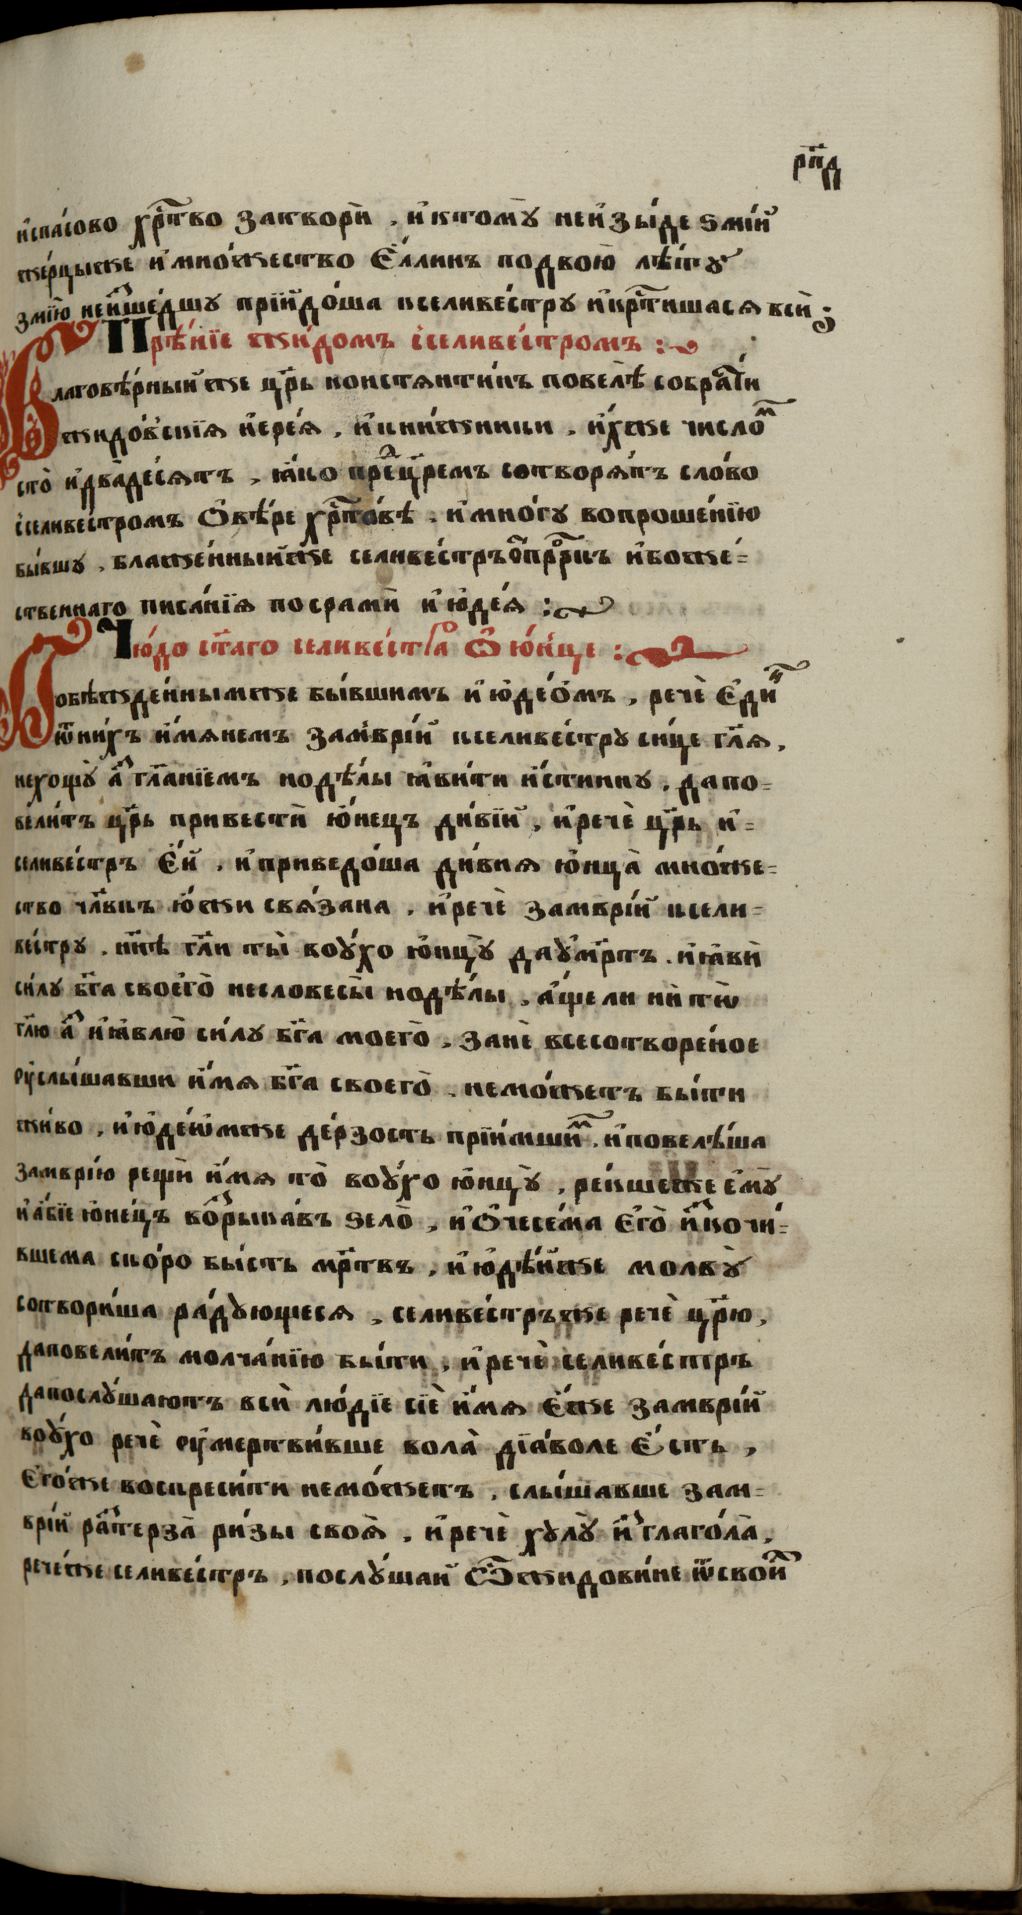 рп҃д
и҆спа́сово хрⷭ҇тво затворѝ . и҆ктомꙋ̀ неи҆зы́де ѕмі́й
жерцы́же и҆мно́жество є҆́ллинъ подвою̀ лѣ́тꙋ
змі́ю неи҆ше́дшꙋ прїидо́ша кселиве́стрꙋ и҆крⷭ҇тишася всѝ ;
Прѣ́нїе жи́домъ і҆селиве́стромъ :
Благовѣ́рныйже цр҃ь константи́нъ повелѣ̀ собра́ти
жидо́вскїя і҆ере́я , и҆кни́жники , и҆́хже число́ⷨ
сто̀ и҆два́десять , ꙗ҆́ко прецр҃емъ сотворя́тъ сло́во
і҆селиве́стромъ ѡ҆вѣ́ре хрⷭ҇то́вѣ . и҆мно́гꙋ вопроше́нїю
бы́вшꙋ . блаже́нныйже селиве́стръ ѿпрⷪ҇ркъ и҆боже=
ственнаго писа́нїя посрамѝ и҆ю҆де́я :
Чю́до ст҃а́го селиве́стра ѡ҆ ю҆́нце :
Побѣжде́ннымже бы́вшимъ и҆ю҆де́ѡмъ , речѐ є҆ди́ⷩ
ѿни́хъ и҆́мянемъ замврі́й кселиве́стрꙋ си́це гл҃я ,
нехощꙋ̀ а҆́зъ гл҃анїемъ нодѣ́лы ꙗ҆ви́ти и҆́стиннꙋ . дапо=
вели́тъ цр҃ь привестѝ ю҆́нецъ ди́вїй , и҆речѐ цр҃ь и҆=
селиве́стръ є҆́й . и҆приведо́ша ди́вия ю҆нца̀ мно́же=
ство чл҃вкъ ю҆́жи свя́зана . и҆речѐ замврі́й ксели=
ве́стрꙋ . нн҃ѣ гл҃и ты̀ воꙋ́хо ю҆нцꙋ̀ даꙋ҆́мретъ . и҆ꙗ҆вѝ
си́лꙋ бг҃а своегѡ̀ несловесы̀ нодѣ́лы , а҆́щели нѝ тѡ̀
гл҃ю а҆́зъ и҆ꙗ҆влю̀ си́лꙋ бг҃а моего̀ , занѐ всесотворе́ное
ᲂу҆слы́шавши и҆́мя бг҃а своего̀ . немо́жетъ бы́ти
жи́во , и҆ю҆де́ѡмже де́рзость прїи́мши́ⷨ . и҆повелѣ́ша
замврі́ю рещѝ и҆́мя то̀ воꙋ́хо ю҆нцꙋ̀ , ре́кшеже є҆мꙋ̀
и҆а́бїе ю҆не́цъ возрыка́въ ѕело̀ , и҆ѻ҆чесе́ма є҆го̀ и҆скочи́=
вшема ско́ро бы́сть мр҃твъ , и҆ю҆дѣ́иже молвꙋ̀
сотвори́ша ра́дꙋющеся , селиве́стръже речѐ цр҃ю̀ ,
даповели́тъ молча́нїю бы́ти , и҆речѐ селиве́стръ
дапослꙋ́шаютъ всѝ лю́дїе сїѐ и҆́мя є҆́же замврі́й
воꙋ́хо речѐ ᲂу҆мертви́вше вола̀ дїа́воле є҆́сть ,
є҆го́же воскреси́ти немо́жетъ , слы́шавше зам=
врі́й растерза̀ ри́зы своѧ̀ , и҆речѐ хꙋлꙋ̀ и҆зглаго́ла ,
рече́же селиве́стръ , послꙋ́шай ѽ жидови́не ѿсвои́ⷯ